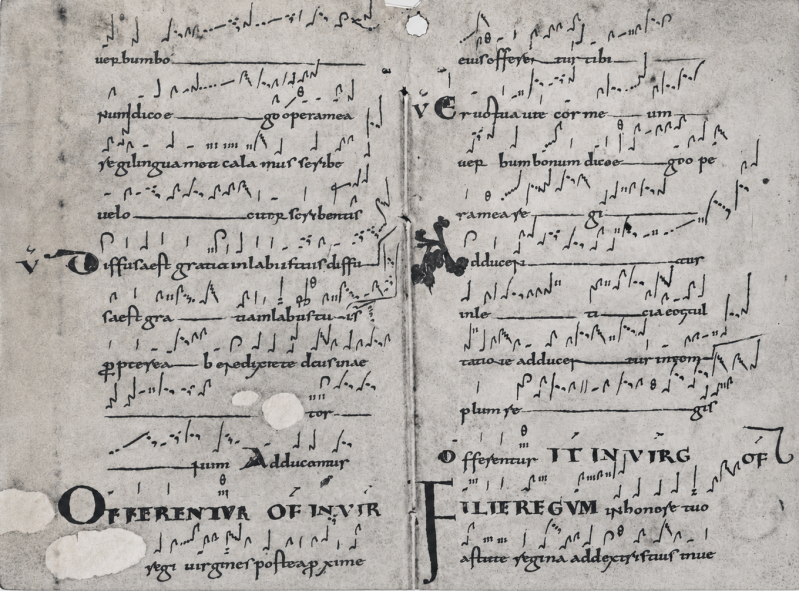 uerbum bo
num dico e go opera mea
regi lingua mea calamus scribe
velo citer scribentis
V Diffusa est gratia in labiis tuis diffu
sa est gra tia in labiis tu is
propterea benedixit te deus in ae
ter
num Adducentur
OFFERENTUR OF IN VIR
regi virgines postea proxime
eius offeren tur tibi
V Eructuauit cor me um
uer bum bonum dico e go o pe
ra mea re gi
Adducen tur
in le ti cia exsul
tatio ne adducen tur in tem
plum re gis
Offerentur IT IN VIRG OF
FILIE REGUM in honore tuo
astitit regina a dextris tuis in ue